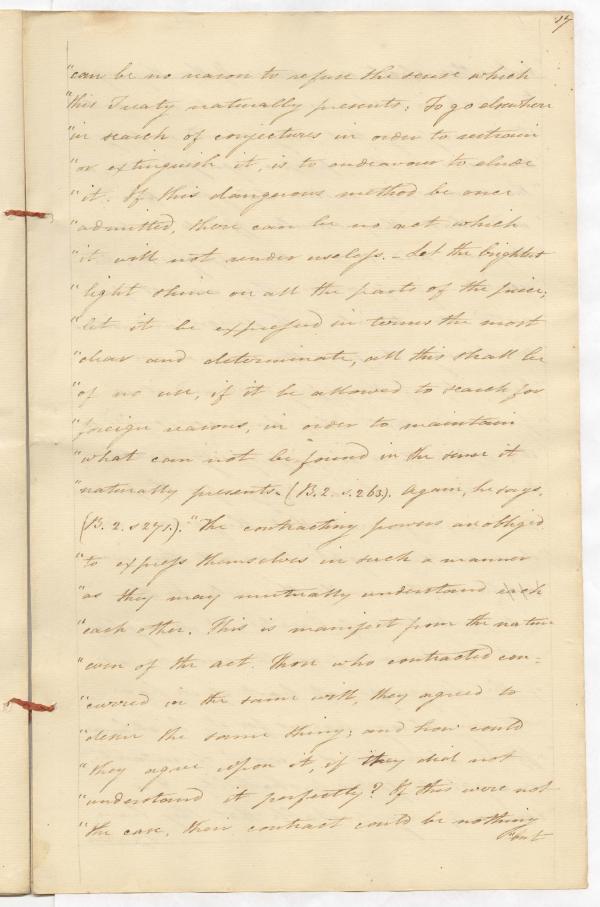 17
"can be no reason to refuse the sense which
"this Treaty naturally presents; To go elsewhere
"in search of conjectures in order to restrain
"or extinguish it, is to endeavour to elude
"it. If this dangerous method be once
"admitted, there can be no act which
"it will not render useless. – Let the brightest
"light shine on all the parts of the piece;
"let it be expressed in terms the most
"clear and determinate, all this shall be
"of no use, if it be allowed to search for
"foreign reasons, in order to maintain
"what can not be found in the sense it
"naturally presents. (B. 2. s. 263). Again, he says,
(B. 2. s 271.). "The contracting powers are obliged
"to express themselves in such a manner
"as they may mutually understand each
"each other. This is manifest from the nature
"even of the act. Those who contracted con=
"curred in the same will, they agreed to
"desire the same thing; and how could
"they agree upon it, if they did not
"understand it perfectly? If this were not
"the case, their contract could be nothing
"but